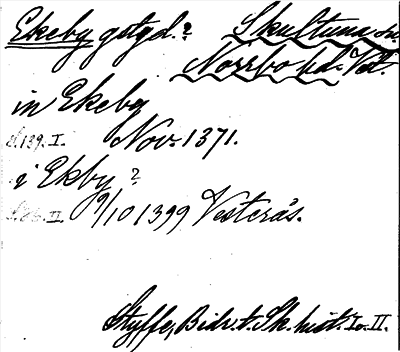 Ekeby gstgd.? Skultuna sn.
Norrbo hd. Vst.
in Ekeby
s. 139. I. Nov. 1371.
i Ekby?
II. 9/10 1399 Vesterås.
Styffe, Bidr. t. Sk. hist. I o. II.